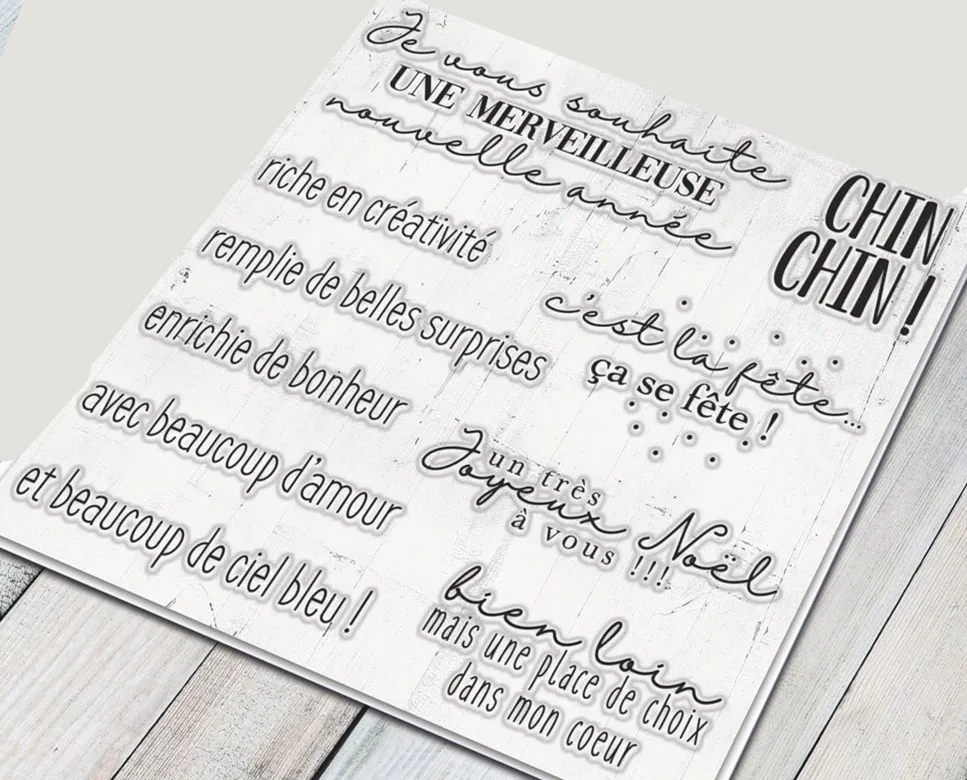 Je vous souhaite
UNE MERVEILLEUSE
nouvelle année
riche en créativité
remplie de belles surprises
enrichie de bonheur
avec beaucoup d'amour
et beaucoup de ciel bleu !
CHIN
CHIN !
c'est la fête...
ça se fête !
un très
Joyeux Noël
à vous !!!
bien loin
mais une place de choix
dans mon coeur